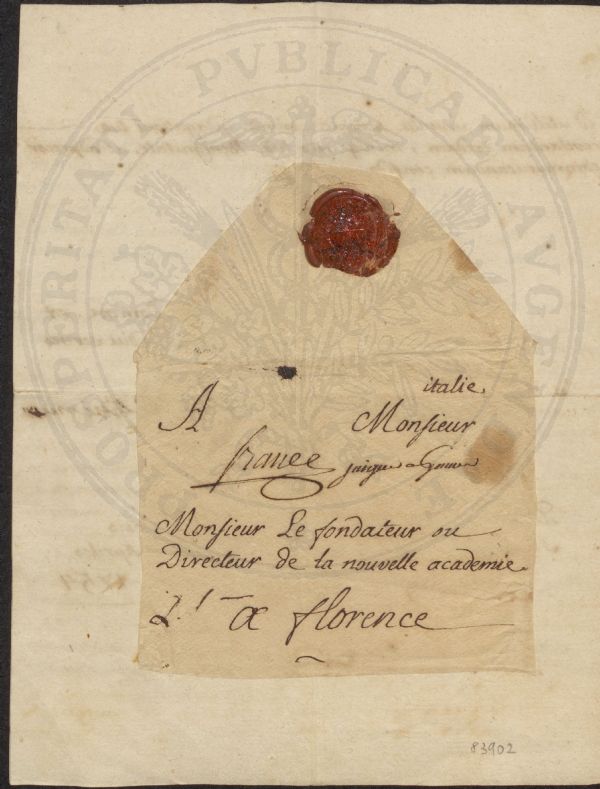 PROSPERITATI PUBLICAE AVGENDAE
italie.
A Monsieur
france jusques a Genes
Monsieur Le fondateur ou
Directeur de la nouvelle academie.
a florence
83902